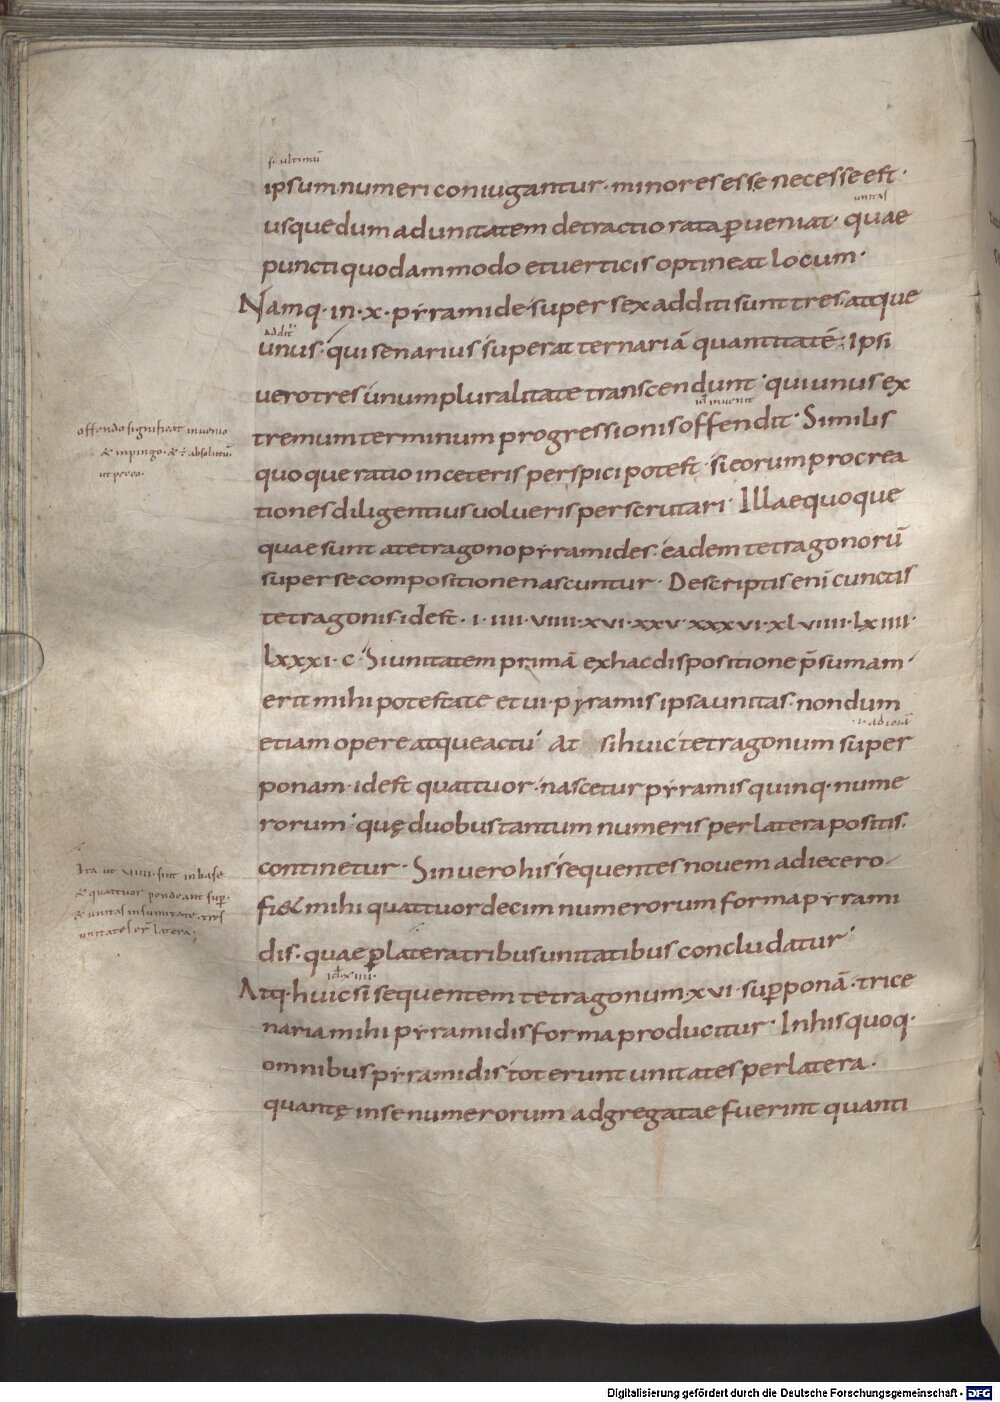 s. ultimũ
ipsum numeri coniugantur · minores esse necesse est ·
unitas
usque dum ad unitatem detractio rata p̱ueniat · quae
puncti quodammodo et uerticis optineat locum ·
Namq · in · x · pyramide · super sex additi sunt tres · atque
addit̃
unus · qui senarius superat ternariã quantitatẽ ; Ipsi
uero tres unum pluralitate transcendunt · qui unus ex
inuenit
tremum terminum progressionis offendit · Similis
offendo significat inuenio
& inpingo · & ẽ absolutũ
ut pecco ·
quoque ratio in ceteris perspici potest · si eorum procrea
tiones diligentius uolueris perscrutari · Illae quoque
quae sunt a tetragono pyramides · eadem tetragonorũ
super se compositione nascuntur · Descriptis eni cunctis
tetragonis · id est · i · iiii · viiii · xvi · xxv · xxxvi · xlviiii · lxiiii ·
lxxxi · c · Si unitatem primã ex hac dispositione p̃sumam ·
erit mihi potestate et ui · pyramis ipsa unitas · nondum
etiam opere atque actu · At si huic tetragonum super
ponam · id est quattuor · nascetur pyramis quinq · nume
rorum · quę duobus tantum numeris per latera positis ·
continetur · Sin uero his sequentes nouem adiecero
Ita ut viiii · sint in base
& quattuor pondeant sup̱ ·
& unitas in sumitate · tres
unitates er̃ latera ;
fi& mihi quattuordecim numerorum forma pyrami
dis · quae p̱ latera tribus unitatibus concludatur ·
id · xiiii ·
Atq · huic si sequentem tetragonum · xvi · sup̱ponã · trice
naria mihi pyramidis forma producitur · In his quoq ·
omnibus pyramidis tot erunt unitates per latera ·
quantę in se numerorum adgregatae fuerint quanti
Digitalisierung gefördert durch die Deutsche Forschungsgemeinschaft - DFG